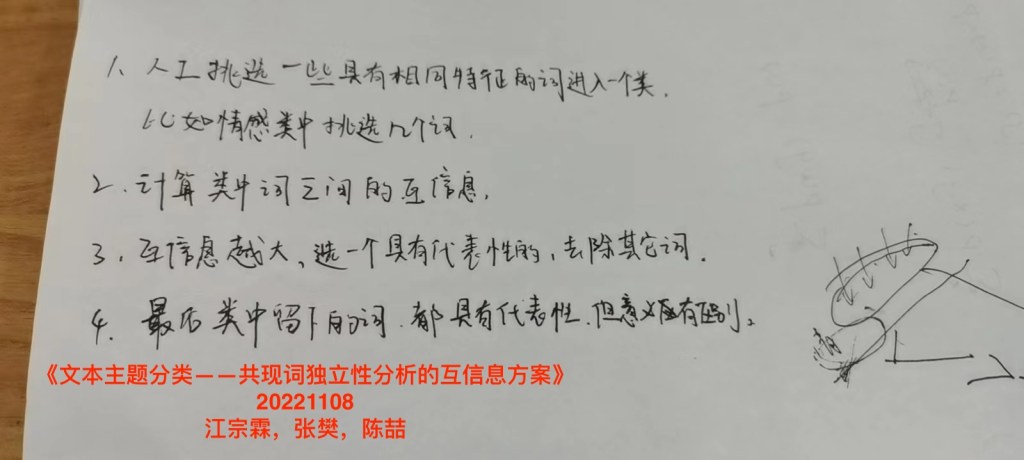 1、人工挑选一些具有相同特征的词进入一个类.
比如情感类中挑选几个词.
2.计算类中词之间的互信息.
3、互信息越大、选一个具有代表性的,去除其它词.
4.最后类中留下的词.都具有代表性.但意义有区别。
《文本主题分类——共现词独立性分析的互信息方案》
20221108
江宗霖，张樊，陈喆